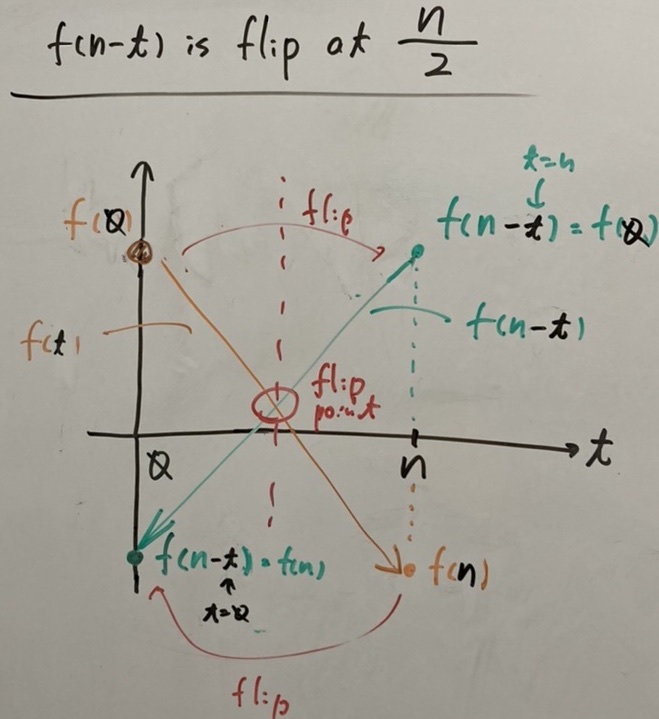 f(n-t) is flip at n/2
t=n
f(0)
flip
f(n-t)=f(0)
f(t)
f(n-t)
flip
point
t
0
n
f(n-t)=f(n)
f(n)
t=0
flip